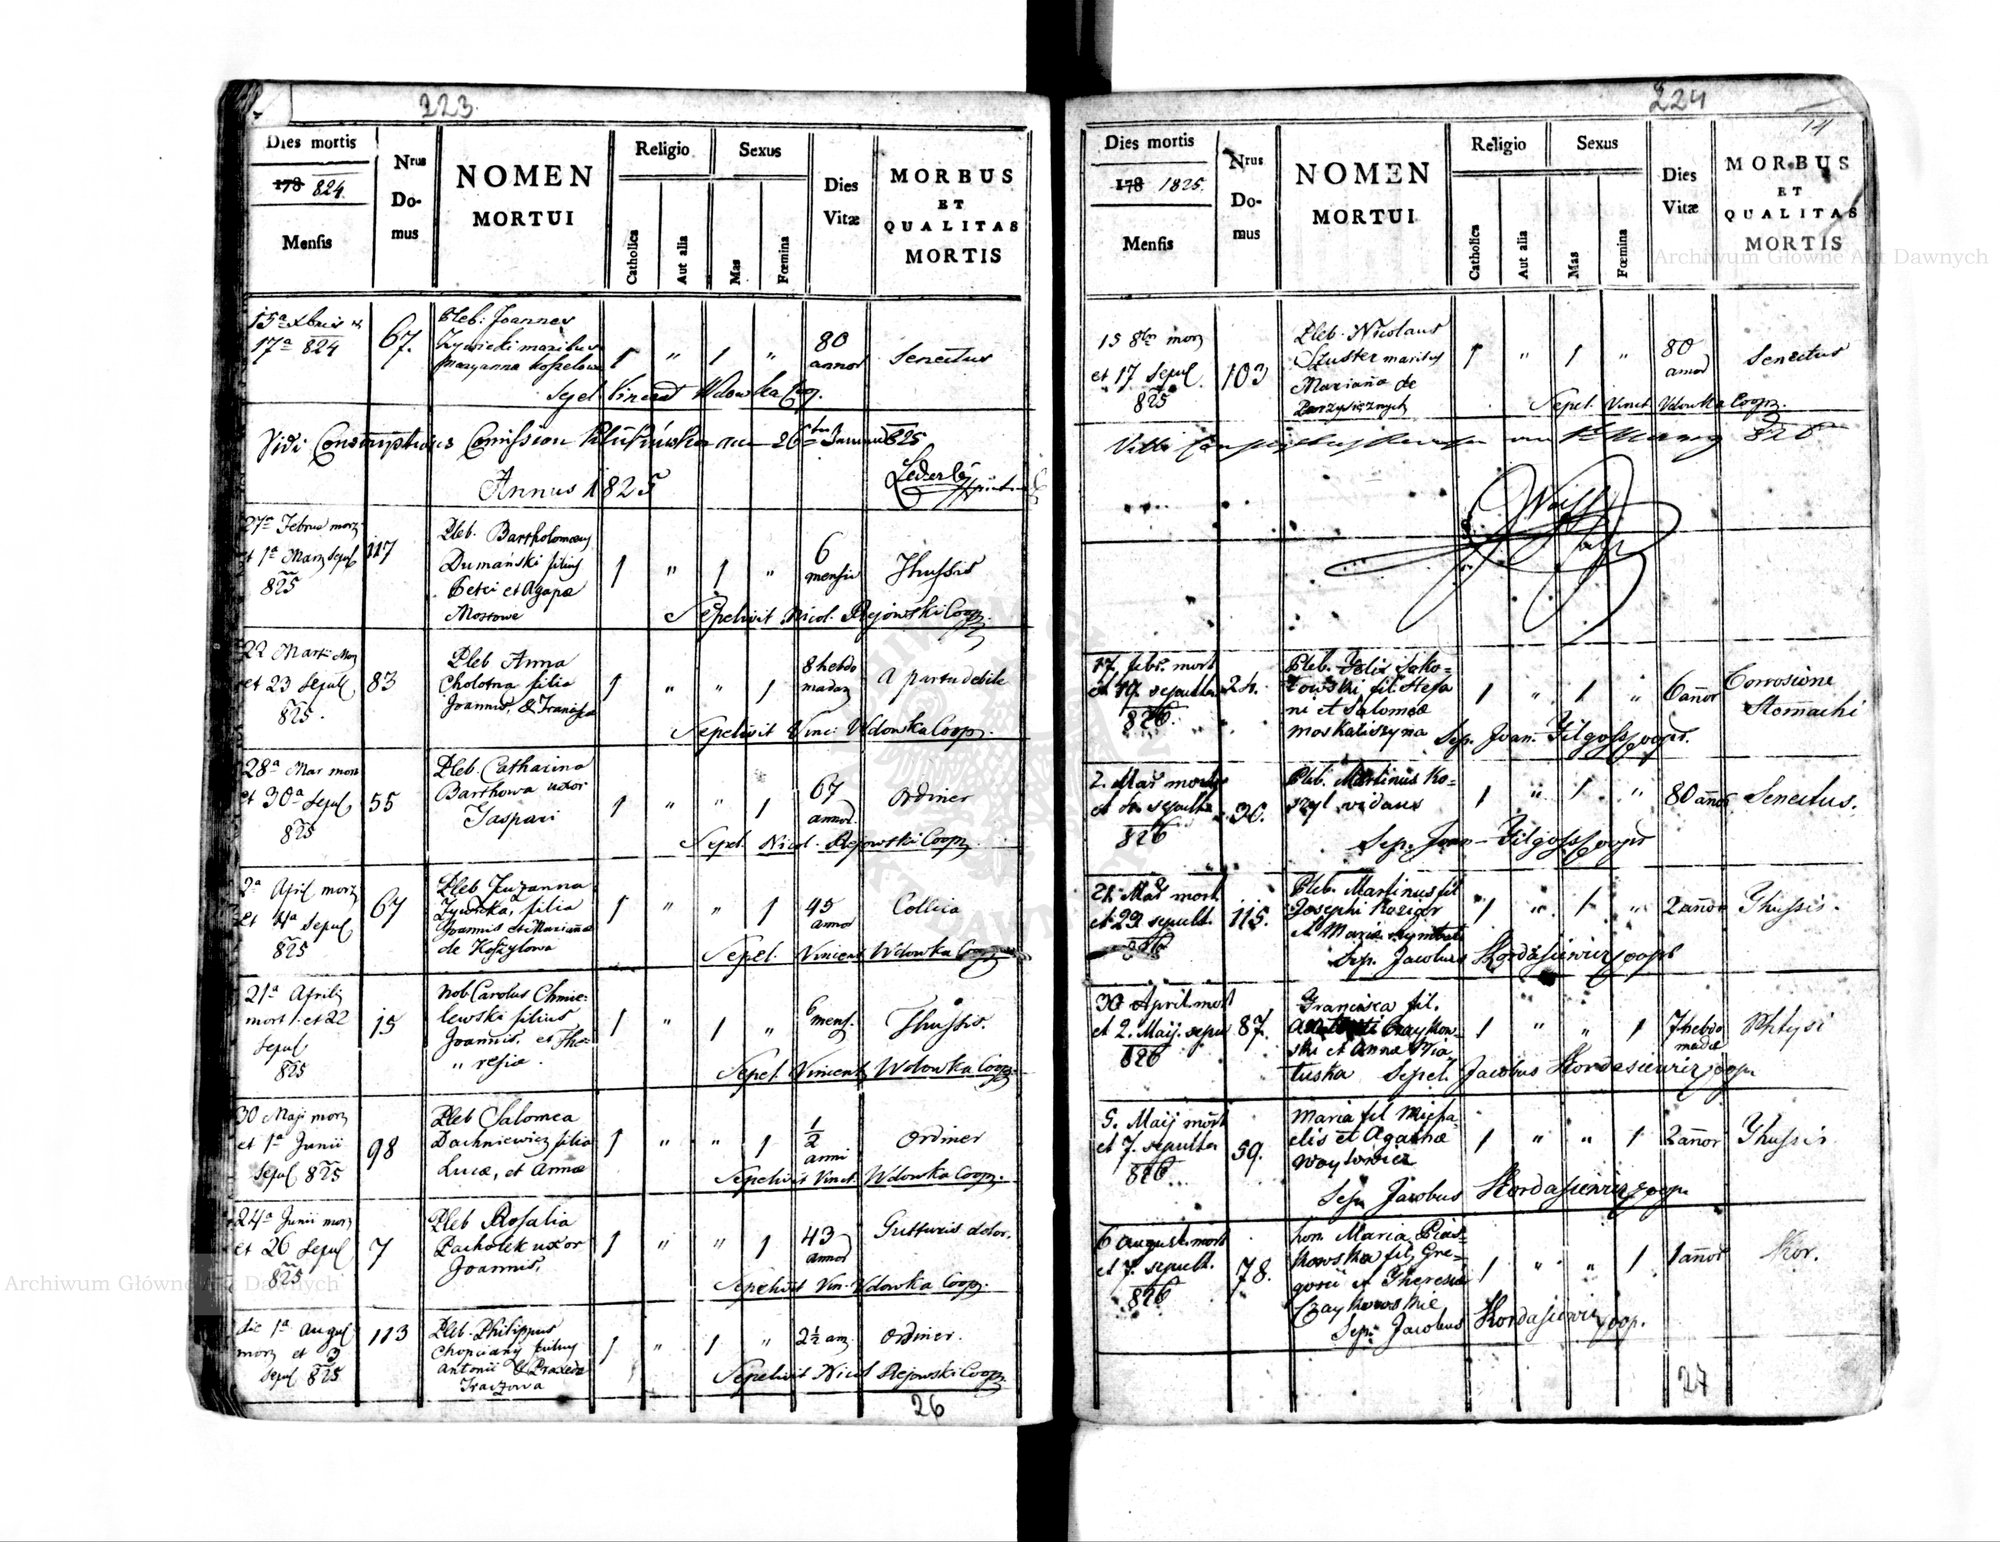 223
Dies mortis
178 824.
Mensis
Nrus
Do-
mus
NOMEN
MORTUI
Religio
Catholica
Aut alia
Sexus
Mas
Fœmina
Dies
Vitæ
MORBUS
ET
QUALITAS
MORTIS
15a Xbris
17a 824
67.
Pleb: Joannes
Zywicki maritus
Maryanna
1 " 1 "
80
annor
Senectus
Sepel Vincent Wdowka Coop.
Vidi 26 825
Annus 1825
27a Febru mor
et 1a Mar Sepul
825
117
Pleb. Bartholomeus
Dumański filius
Petri et Agapa
Mostowe
1 " 1 "
6
mensis
Thussis
Sepelivit Nicol. Rejowski Coop.
22 Marti Mor
et 23 Sepul
825.
83
Pleb Anna
Cholotna filia
Joannis, & Francisca
1 " " 1
8 hebdo
madar
A partu debile
Sepelivit Vinc: Wdowka Coop.
28a Mar mor
et 30a Sepul
825
55
Pleb. Catharina
Barthowa uxor
Gaspari
1 " " 1
67
annor.
Ordiner
Sepel. Nicol. Rejowski Coop
2a April mor
et 4a Sepul
825
67
Pleb Zuzanna
Zywicka, filia
Joannis et Mariannæ
de
1 " " 1
45
annor
Collica
Sepel. Vincent Wdowka Coop
21a Aprilis
mort. et 22
Sepul
825
15
Nob Carolus Chmie-
lewski filius
Joannis, et The-
" resia.
1 " 1 "
6
mens.
Thussis.
Sepel. Vincent Wdowka Coop.
30 Maji mor
et 1a Junii
Sepul 825
98
Pleb Salomea
Dachniewicz filia
Lucæ, et Annæ
1 " " 1
1/2
anni
Ordiner
Sepelivit Vinct. Wdowka Coop.
24a Junii mor
et 26 Sepul
825
7
Pleb Rosalia
Pacholek uxor
Joannis.
1 " " 1
43
annor
Gutturis dolor.
Sepelivit Vin. Wdowka Coop.
die 1a Augus
mor et 3
Sepul 825
113
Pleb. Philippus
Chopciany filius
Antonii & Praxeda
Traczowa
1 " 1 "
2 1/2 an
Ordiner.
Sepelivit Nicol Rejowski Coop.
26
224
14
Dies mortis
178 1825.
Mensis
Nrus
Do-
mus
NOMEN
MORTUI
Religio
Catholica
Aut alia
Sexus
Mas
Fœmina
Dies
Vitæ
MORBUS
ET
QUALITAS
MORTIS
15 8br mor
et 17 Sepul.
825
103
Pleb. Nicolaus
Szuster maritus
Marianna de
1 " 1 "
80
annor
Senectus
Sepel. Vinct Wdowka Coop.
17. febr. mort
et 19. sepultus
826.
24.
Pleb. Felix Soko-
łowski, fil. Stefa
ni et Salomeæ
Moskaliszyna
1 " 1 "
6 añor
Corrosione
Stomachi
Sep. Joan. Filgoss Coopr.
2. Mar mort
et 4. sepultus
826
30.
Pleb. Martinus Ko-
szyl viduus
1 " 1 "
80 añor
Senectus.
Sep. Joan Filgoss Coopr
21. Mar mort
et 23 sepult.
826
115.
Pleb. Martinus fil
Josephi Kozior
et Mariæ
1 " 1 "
2 añor
Thussis.
Sep. Jacobus Kordasiewicz Coopr
30 April mort
et 2. Maij. sepu
826
87.
Francisca fil.
Antonii Czaykow-
ski et Annæ Wia
tuska
1 " " 1
7 hebdo
madæ
Phtysi
Sepel. Jacobus Kordasiewicz Coopr
5. Maij mort
et 7. sepulta
826.
59.
Maria fil Micha-
elis et Agathæ
Woytowicz
1 " " 1
2 añor
Thussis.
Sep. Jacobus Kordasiewicz Coop.
6 August. mort
et 7. sepult.
826
78.
hon. Maria Pias-
kowska fil. Gre-
gorii et Theresiæ
Czaykowskie
1 " " 1
1 añor
Kor.
Sep. Jacobus Kordasiewicz Coop.
27
Archiwum Główne Akt Dawnych
Archiwum Główne Akt Dawnych